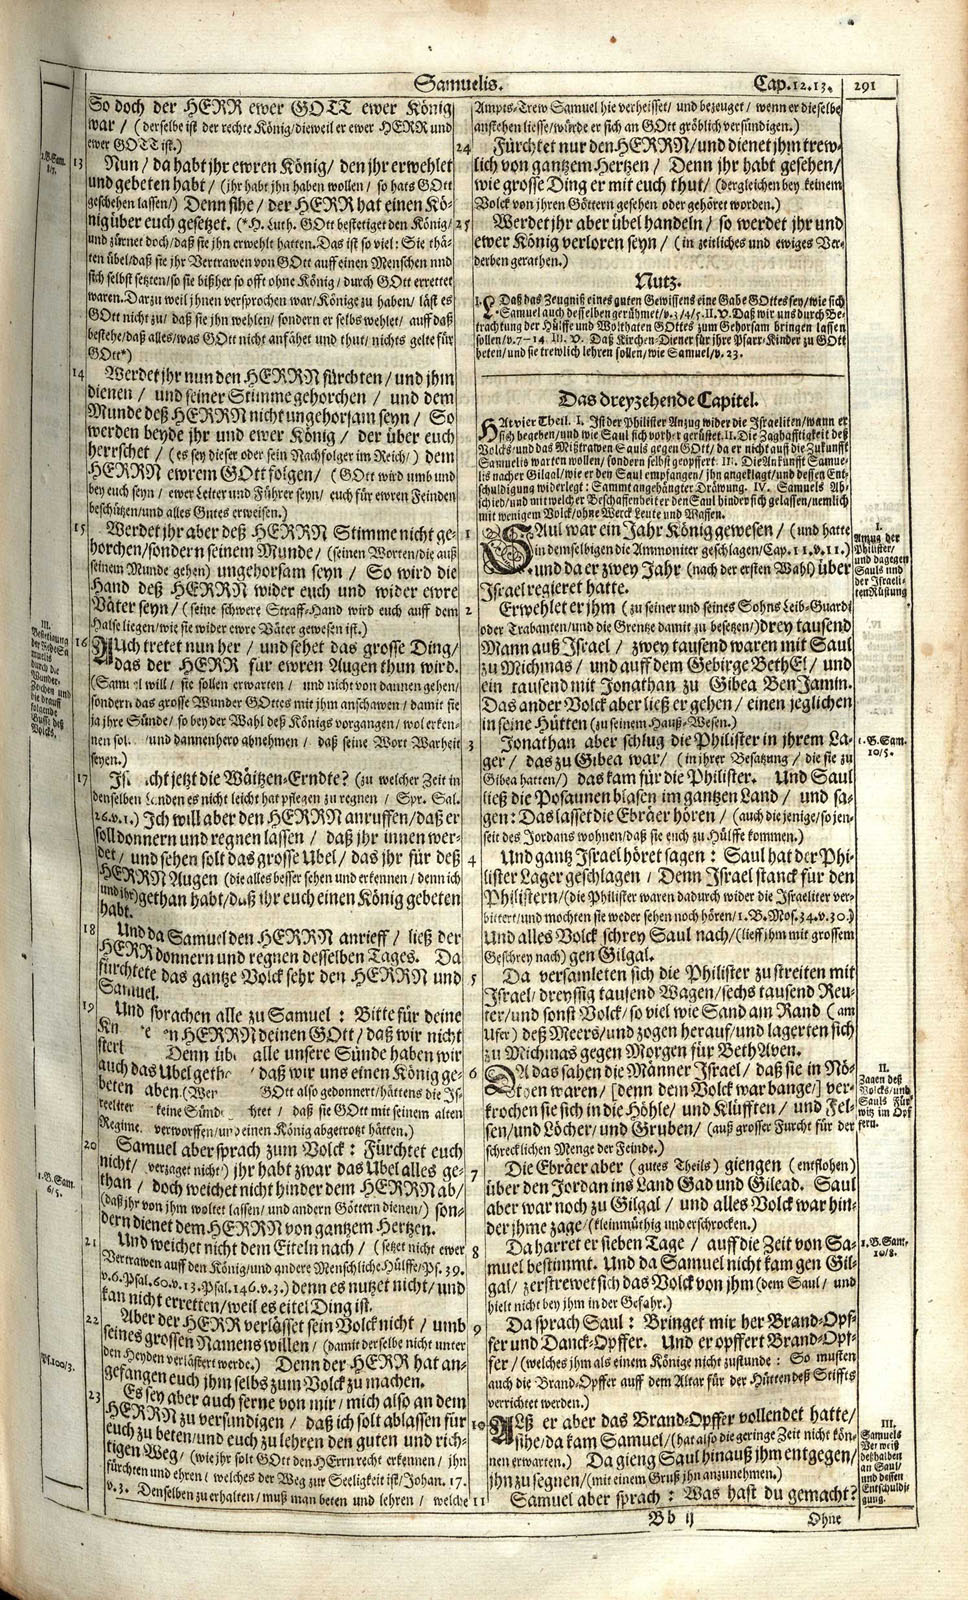 Samuelis.
Cap. 12. 13.
291
So doch der HERR ewer GOTT ewer König
war / (derselbe ist der rechte König/dieweil er ewer HERR und
ewer GOTT ist.)
1. B. Sam.
13
Nun / da habt jhr ewren König / den jhr erwehlet
und gebeten habt / (jhr habt jhn haben wollen / so hats GOtt
geschehen lassen/) Denn sihe / der HERR hat einen Kö-
nig über euch gesetzet. (*H. Luth. GOtt bestetiget den König/
und zürnet doch/daß sie jhn erwehlt hatten. Das ist so viel: Sie thä-
ten übel/daß sie jhr Vertrawen von GOtt auff einen Menschen und
sich selbst setzten/so sie bißher so offt ohne König / durch GOtt errettet
waren. Darzu weil jhnen versprochen war/Könige zu haben/ läst es
GOtt nicht zu/ daß sie jhn wehlen/ sondern er selbs wehlet/ auff daß
bestehe/daß alles/was GOtt nicht anfähet und thut/nichts gelte für
GOtt*)
14
Werdet jhr nun den HERRN fürchten / und jhm
dienen / und seiner Stimme gehorchen / und dem
Munde deß HERRN nicht ungehorsam seyn / So
werden beyde jhr und ewer König / der über euch
herrschet / (es sey dieser oder sein Nachfolger im Reich/) dem
HERRN ewrem GOtt folgen / (GOtt wird umb und
bey euch seyn / ewer Leiter und Führer seyn / euch für ewren Feinden
beschützen/und alles Gutes erweisen.)
15
Werdet jhr aber deß HERRN Stimme nicht ge-
horchen/sondern seinem Munde / (seinen Worten/die auß
seinem Munde gehen) ungehorsam seyn / So wird die
Hand deß HERRN wider euch und wider ewre
Väter seyn / (seine schwere Straff-Hand wird euch auff dem
Halse liegen/wie sie wider ewre Väter gewesen ist.)
III.
Bestetigung
durch die
Wunder-
Zeichen und
die drauff
folgende
Busse deß
Volcks.
16
AUch tretet nun her / und sehet das grosse Ding/
das der HERR für ewren Augen thun wird.
will / sie sollen erwarten / und nicht von dannen gehen/
sondern das grosse Wunder GOttes mit jhm anschawen / damit sie
ja jhre Sünde / so bey der Wahl deß Königs vorgangen / wol erken-
nen / und dannenhero abnehmen / daß seine Wort Warheit
seyen.)
17
jetzt die Wäitzen-Erndte? (zu welcher Zeit in
denselben es nicht leicht hat pflegen zu regnen / Spr. Sal.
26. v. 1.) Ich will aber den HERRN anruffen/daß er
soll donnern und regnen lassen / daß jhr innen wer-
det / und sehen solt das grosse Ubel / das jhr für deß
HERRN Augen (die alles besser sehen und erkennen / denn ich
und jhr) gethan habt/daß jhr euch einen König gebeten
habt.
18
Und da Samuel den HERRN anrieff / ließ der
HERR donnern und regnen desselben Tages. Da
fürchtete das gantze Volck sehr den HERRN und
Samuel.
19
Und sprachen alle zu Samuel : Bitte für deine
HERRN deinen GOtt / daß wir nicht
Denn alle unsere Sünde haben wir
auch das Ubel daß wir uns einen König ge-
beten GOtt also gedonnert/hättens die Is-
keine daß sie GOtt mit seinem alten
Regime. verworffen einen König abgetrotzt hätten.)
20
Samuel aber sprach zum Volck : Fürchtet euch
nicht / verzaget nicht/) jhr habt zwar das Ubel alles ge-
than / doch weichet nicht hinder dem HERRN ab/
(daß jhr von jhm woltet lassen/und andern Göttern dienen/) son-
dern dienet dem HERRN von gantzem Hertzen.
1. B. Sam.
6/5.
21
Und weichet nicht dem Eiteln nach / (setzet nicht ewer
Vertrawen auff den König/und andere Menschliche Hülffe/Ps. 39.
v. 6. Psal. 60. v. 13. Psal. 146. v. 3.) denn es nutzet nicht/und
kan nicht erretten/weil es eitel Ding ist.
22
Aber der HERR verlässet sein Volck nicht / umb
seines grossen Namens willen / (damit derselbe nicht unter
den Heyden verlästert werde.) Denn der HERR hat an-
gefangen euch jhm selbs zum Volck zu machen.
Ps. 100/3.
23
Es sey aber auch ferne von mir / mich also an dem
HERRN zu versündigen / daß ich solt ablassen für
euch zu beten/und euch zu lehren den guten und rich-
tigen Weg / (wie jhr solt GOtt den Herrn recht erkennen / jhn
fürchten und ehren / welches der Weg zur Seeligkeit ist/Johan. 17.
v. 3. Denselben zu erhalten / muß man beten und lehren / welche
Ampts-Trew Samuel hie verheisset / und bezeuget / wenn er dieselbe
anstehen liesse/würde er sich an GOtt gröblich versündigen.)
24
Fürchtet nur den HERRN/und dienet jhm trew-
lich von gantzem Hertzen / Denn jhr habt gesehen/
wie grosse Ding er mit euch thut/ (dergleichen bey keinem
Volck von jhren Göttern gesehen oder gehöret worden.)
25
Werdet jhr aber übel handeln / so werdet jhr und
ewer König verloren seyn / (in zeitliches und ewiges Ver-
derben gerathen.)
Nutz.
I. L. Daß das Zeugniß eines guten Gewissens eine Gabe GOttes sey/wie sich
Samuel auch desselben gerühmet/v. 3/4/5. II. V. Daß wir uns durch Be-
trachtung der Hülffe und Wolthaten GOttes zum Gehorsam bringen lassen
sollen/v. 7-14 III. V. Daß Kirchen-Diener für jhre Pfarr-Kinder zu GOtt
beten/und sie trewlich lehren sollen/wie Samuel/v. 23.
Das dreyzehende Capitel.
HAt vier Theil. I. Ist der Philister Anzug wider die Israeliten/wann er
sich begeben/und wie Saul sich vorher gerüstet. II. Die Zaghafftigkeit deß
Volcks/und das Mißtrawen Sauls gegen GOtt/da er nicht auff die Zukunfft
Samuelis warten wollen/sondern selbst geopffert. III. Die Ankunfft Samue-
lis nacher Gilgal/wie er bey Saul empfangen/jhn angeklagt/und dessen Ent-
schuldigung widerlegt: Sammt angehängter Dräwung. IV. Samuels Ab-
schied/und mit welcher Beschaffenheit er den Saul hinder sich gelassen/nemlich
mit wenigem Volck/ohne Werck Leute und Waffen.
1
SAul war ein Jahr König gewesen / (und hatte
in demselbigen die Ammoniter geschlagen/Cap. 11. v. 11.)
und da er zwey Jahr (nach der ersten Wahl) über
Israel regieret hatte.
I.
Anzug der
Philister/
und dagegen
Sauls und
der Israeli-
ten Rüstung
2
Erwehlet er jhm (zu seiner und seines Sohns Leib-Guardi
oder Trabanten/und die Grentze damit zu besetzen/) drey tausend
Mann auß Israel / zwey tausend waren mit Saul
zu Michmas / und auff dem Gebirge BethEl/ und
ein tausend mit Jonathan zu Gibea BenJamin.
Das ander Volck aber ließ er gehen / einen jeglichen
in seine Hütten (zu seinem Hauß-Wesen.)
3
Jonathan aber schlug die Philister in jhrem La-
ger / das zu Gibea war / (in jhrer Besatzung / die sie zu
Gibea hatten/) das kam für die Philister. Und Saul
ließ die Posaunen blasen im gantzen Land / und sa-
gen : Das lasset die Ebräer hören / (auch die jenige/so jen-
seit des Jordans wohnen/daß sie euch zu Hülffe kommen.)
1. B. Sam.
10/5.
4
Und gantz Israel höret sagen : Saul hat der Phi-
lister Lager geschlagen / Denn Israel stanck für den
Philistern/(die Philister waren dadurch wider die Israeliter ver-
bittert/und mochten sie weder sehen noch hören/1. B. Mos. 34. v. 30.)
Und alles Volck schrey Saul nach/(lieff jhm mit grossem
Geschrey nach) gen Gilgal.
5
Da versamleten sich die Philister zu streiten mit
Israel/dreyssig tausend Wagen/sechs tausend Reu-
ter/und sonst Volck/so viel wie Sand am Rand (am
Ufer) deß Meers/und zogen herauf/und lagerten sich
zu Michmas gegen Morgen für BethAven.
6
DA das sahen die Männer Israel/daß sie in Nö-
then waren/ [denn dem Volck war bange/] ver-
krochen sie sich in die Höhle/ und Klüfften / und Fel-
sen/und Löcher/und Gruben/ (auß grosser Furcht für der
schrecklichen Menge der Feinde.)
II.
Zagen deß
Volcks/und
Sauls Für
witz im Opf
fern.
7
Die Ebräer aber (gutes Theils) giengen (entflohen)
über den Jordan ins Land Gad und Gilead. Saul
aber war noch zu Gilgal / und alles Volck war hin-
der jhme zage/(kleinmüthig und erschrocken.)
8
Da harret er sieben Tage / auff die Zeit von Sa-
muel bestimmt. Und da Samuel nicht kam gen Gil-
gal/ zerstrewet sich das Volck von jhm (dem Saul / und
hielt nicht bey jhm in der Gefahr.)
1. B. Sam.
10/8.
9
Da sprach Saul : Bringet mir her Brand-Opf-
fer und Danck-Opffer. Und er opffert Brand-Opf-
fer / (welches jhm als einem Könige nicht zustunde : So musten
auch die Brand-Opffer auff dem Altar für der Hütten deß Stiffts
verrichtet werden.)
10
ALß er aber das Brand-Opffer vollendet hatte/
sihe/da kam Samuel/(hat also die geringe Zeit nicht kön-
nen erwarten.) Da gieng Saul hinauß jhm entgegen/
jhn zu segnen/(mit einem Gruß jhn anzunehmen.)
III.
Samuels
Verweiß
deßhalben
an Saul/
und dessen
Entschuldi-
gung.
11
Samuel aber sprach : Was hast du gemacht?
Bb ij
Ohne